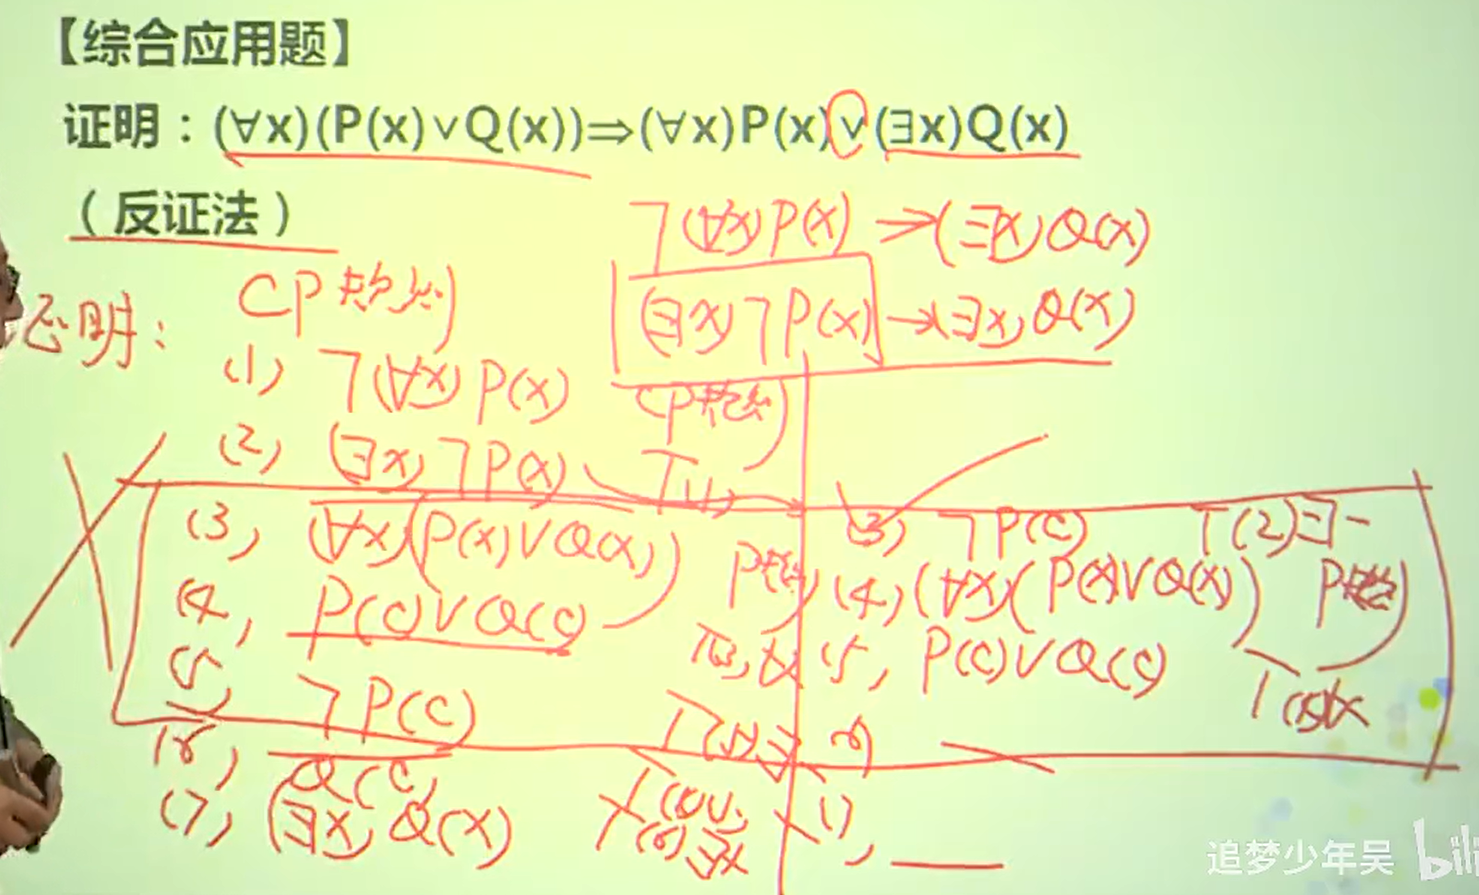 【综合应用题】
证明：(∀x)(P(x)∨Q(x))⇒(∀x)P(x)∨(∃x)Q(x)
（反证法）
¬(∀x)P(x)→(∃x)Q(x)
(∃x)¬P(x)→(∃x)Q(x)
证明：
CP规则
(1) ¬(∀x)P(x) CP规则
(2) (∃x)¬P(x) T(1)
(3) (∀x)(P(x)∨Q(x)) P规则
(4) P(c)∨Q(c) T(3)
(5) ¬P(c)
(6) Q(c)
(7) (∃x)Q(x)
(3) ¬P(c) T(2)∃-
(4) (∀x)(P(x)∨Q(x)) P规则
(5) P(c)∨Q(c)
(6)
追梦少年吴